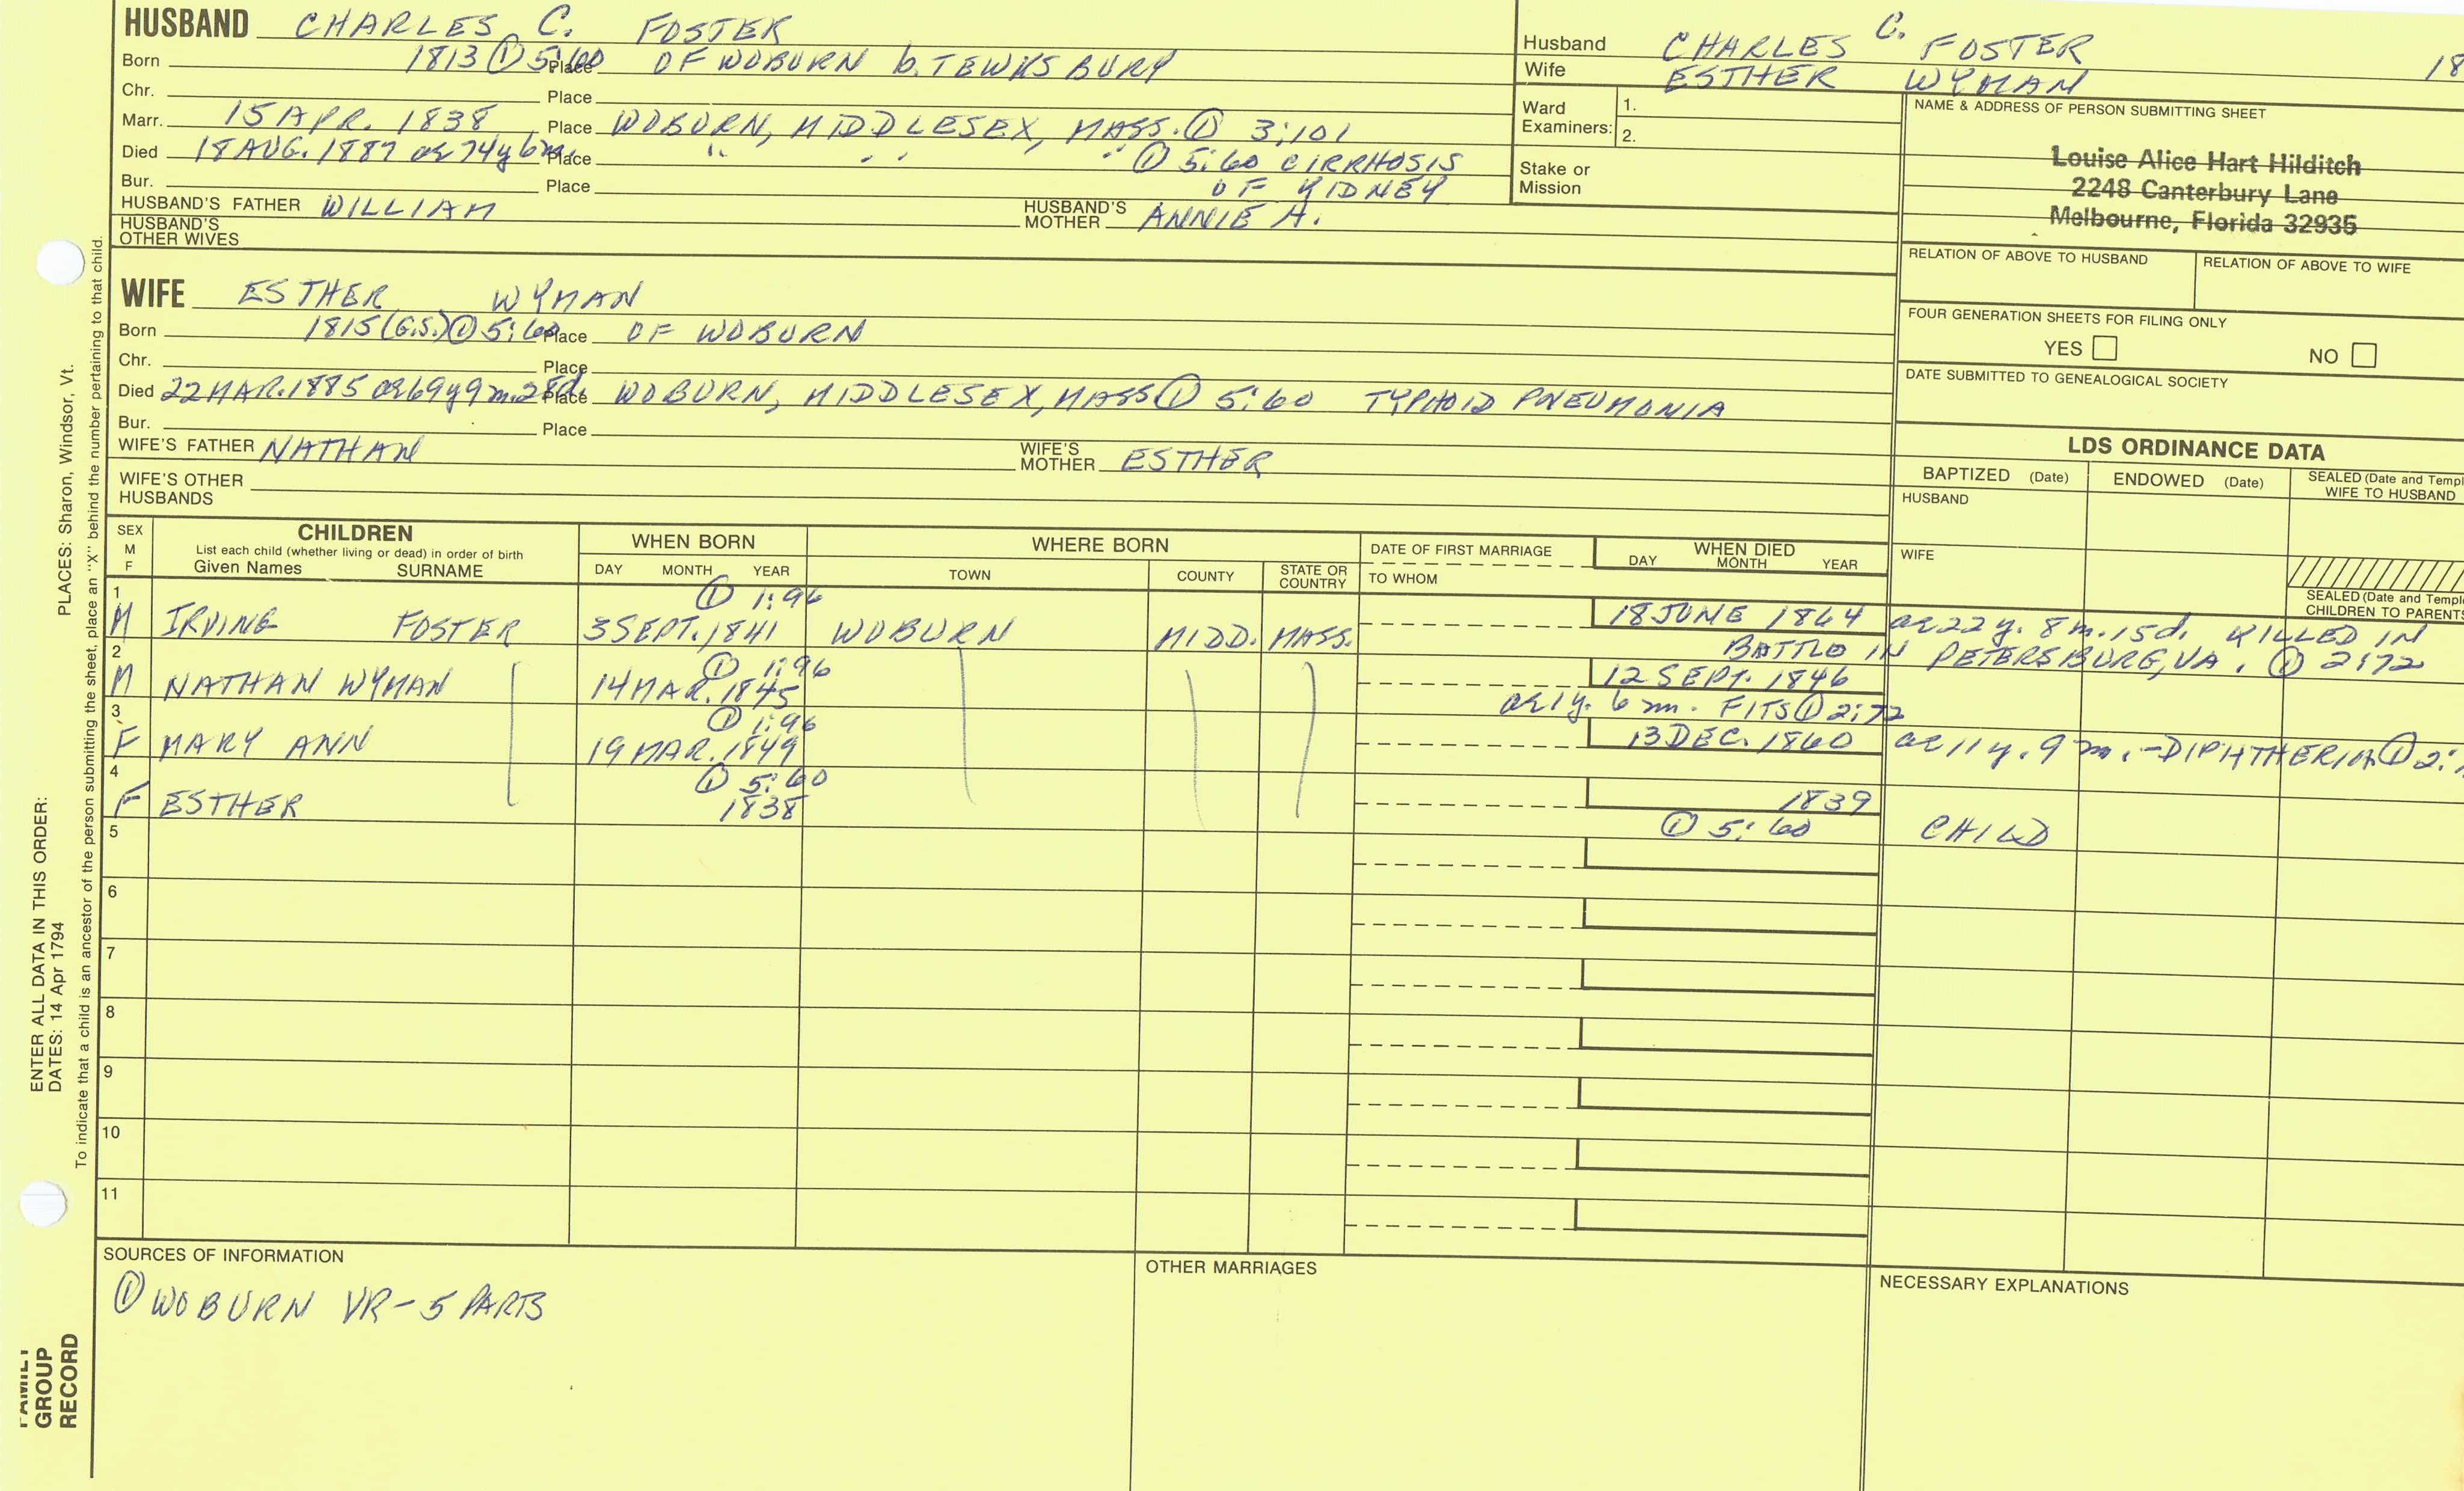 HUSBAND CHARLES C. FOSTER
Born 1813 ① 5:60 Place OF WOBURN b. TEWKSBURY
Chr. Place
Marr. 15 APR. 1838 Place WOBURN, MIDDLESEX, MASS. ① 3:101
Died 18 AUG. 1887 ae 74y 6m. Place " " " ① 5:60 CIRRHOSIS
OF KIDNEY
Bur. Place
HUSBAND'S FATHER WILLIAM HUSBAND'S MOTHER ANNIE A.
HUSBAND'S OTHER WIVES
Husband CHARLES C. FOSTER 18
Wife ESTHER WYMAN
Ward Examiners: 1.
2.
Stake or Mission
NAME & ADDRESS OF PERSON SUBMITTING SHEET
Louise Alice Hart Hilditch
2248 Canterbury Lane
Melbourne, Florida 32935
RELATION OF ABOVE TO HUSBAND RELATION OF ABOVE TO WIFE
FOUR GENERATION SHEETS FOR FILING ONLY
YES NO
DATE SUBMITTED TO GENEALOGICAL SOCIETY
WIFE ESTHER WYMAN
Born 1815 (G.S.) ① 5:60 Place OF WOBURN
Chr. Place
Died 22 MAR. 1885 ae 69y 9m. 28d. Place WOBURN, MIDDLESEX, MASS ① 5:60 TYPHOID PNEUMONIA
Bur. Place
WIFE'S FATHER NATHAN WIFE'S MOTHER ESTHER
WIFE'S OTHER HUSBANDS
LDS ORDINANCE DATA
BAPTIZED (Date) ENDOWED (Date) SEALED (Date and Templ
WIFE TO HUSBAND
HUSBAND
WIFE
SEALED (Date and Templ
CHILDREN TO PARENTS
SEX M F CHILDREN WHEN BORN WHERE BORN DATE OF FIRST MARRIAGE WHEN DIED
List each child (whether living or dead) in order of birth
Given Names SURNAME DAY MONTH YEAR TOWN COUNTY STATE OR COUNTRY TO WHOM DAY MONTH YEAR
1 ① 1:96
M IRVING FOSTER 3 SEPT. 1841 WOBURN MIDD. MASS. 18 JUNE 1864 ae 22 y. 8 m. 15 d. KILLED IN
BATTLE IN PETERSBURG, VA. ① 2:72
2 ① 1:96
M NATHAN WYMAN 14 MAR. 1845 12 SEPT. 1846
ae 1y. 6 m. FITS ① 2:72
3 ① 1:96
F MARY ANN 19 MAR. 1849 13 DEC. 1860 ae 11 y. 9 m. - DIPHTHERIA ① 2:
4 ① 5:60
F ESTHER 1838 1839
① 5:60 CHILD
5
6
7
8
9
10
11
SOURCES OF INFORMATION OTHER MARRIAGES NECESSARY EXPLANATIONS
① WOBURN VR - 5 PARTS
ENTER ALL DATA IN THIS ORDER:
DATES: 14 Apr 1794 PLACES: Sharon, Windsor, Vt.
To indicate that a child is an ancestor of the person submitting the sheet, place an "X" behind the number pertaining to that child.
FAMILY
GROUP
RECORD